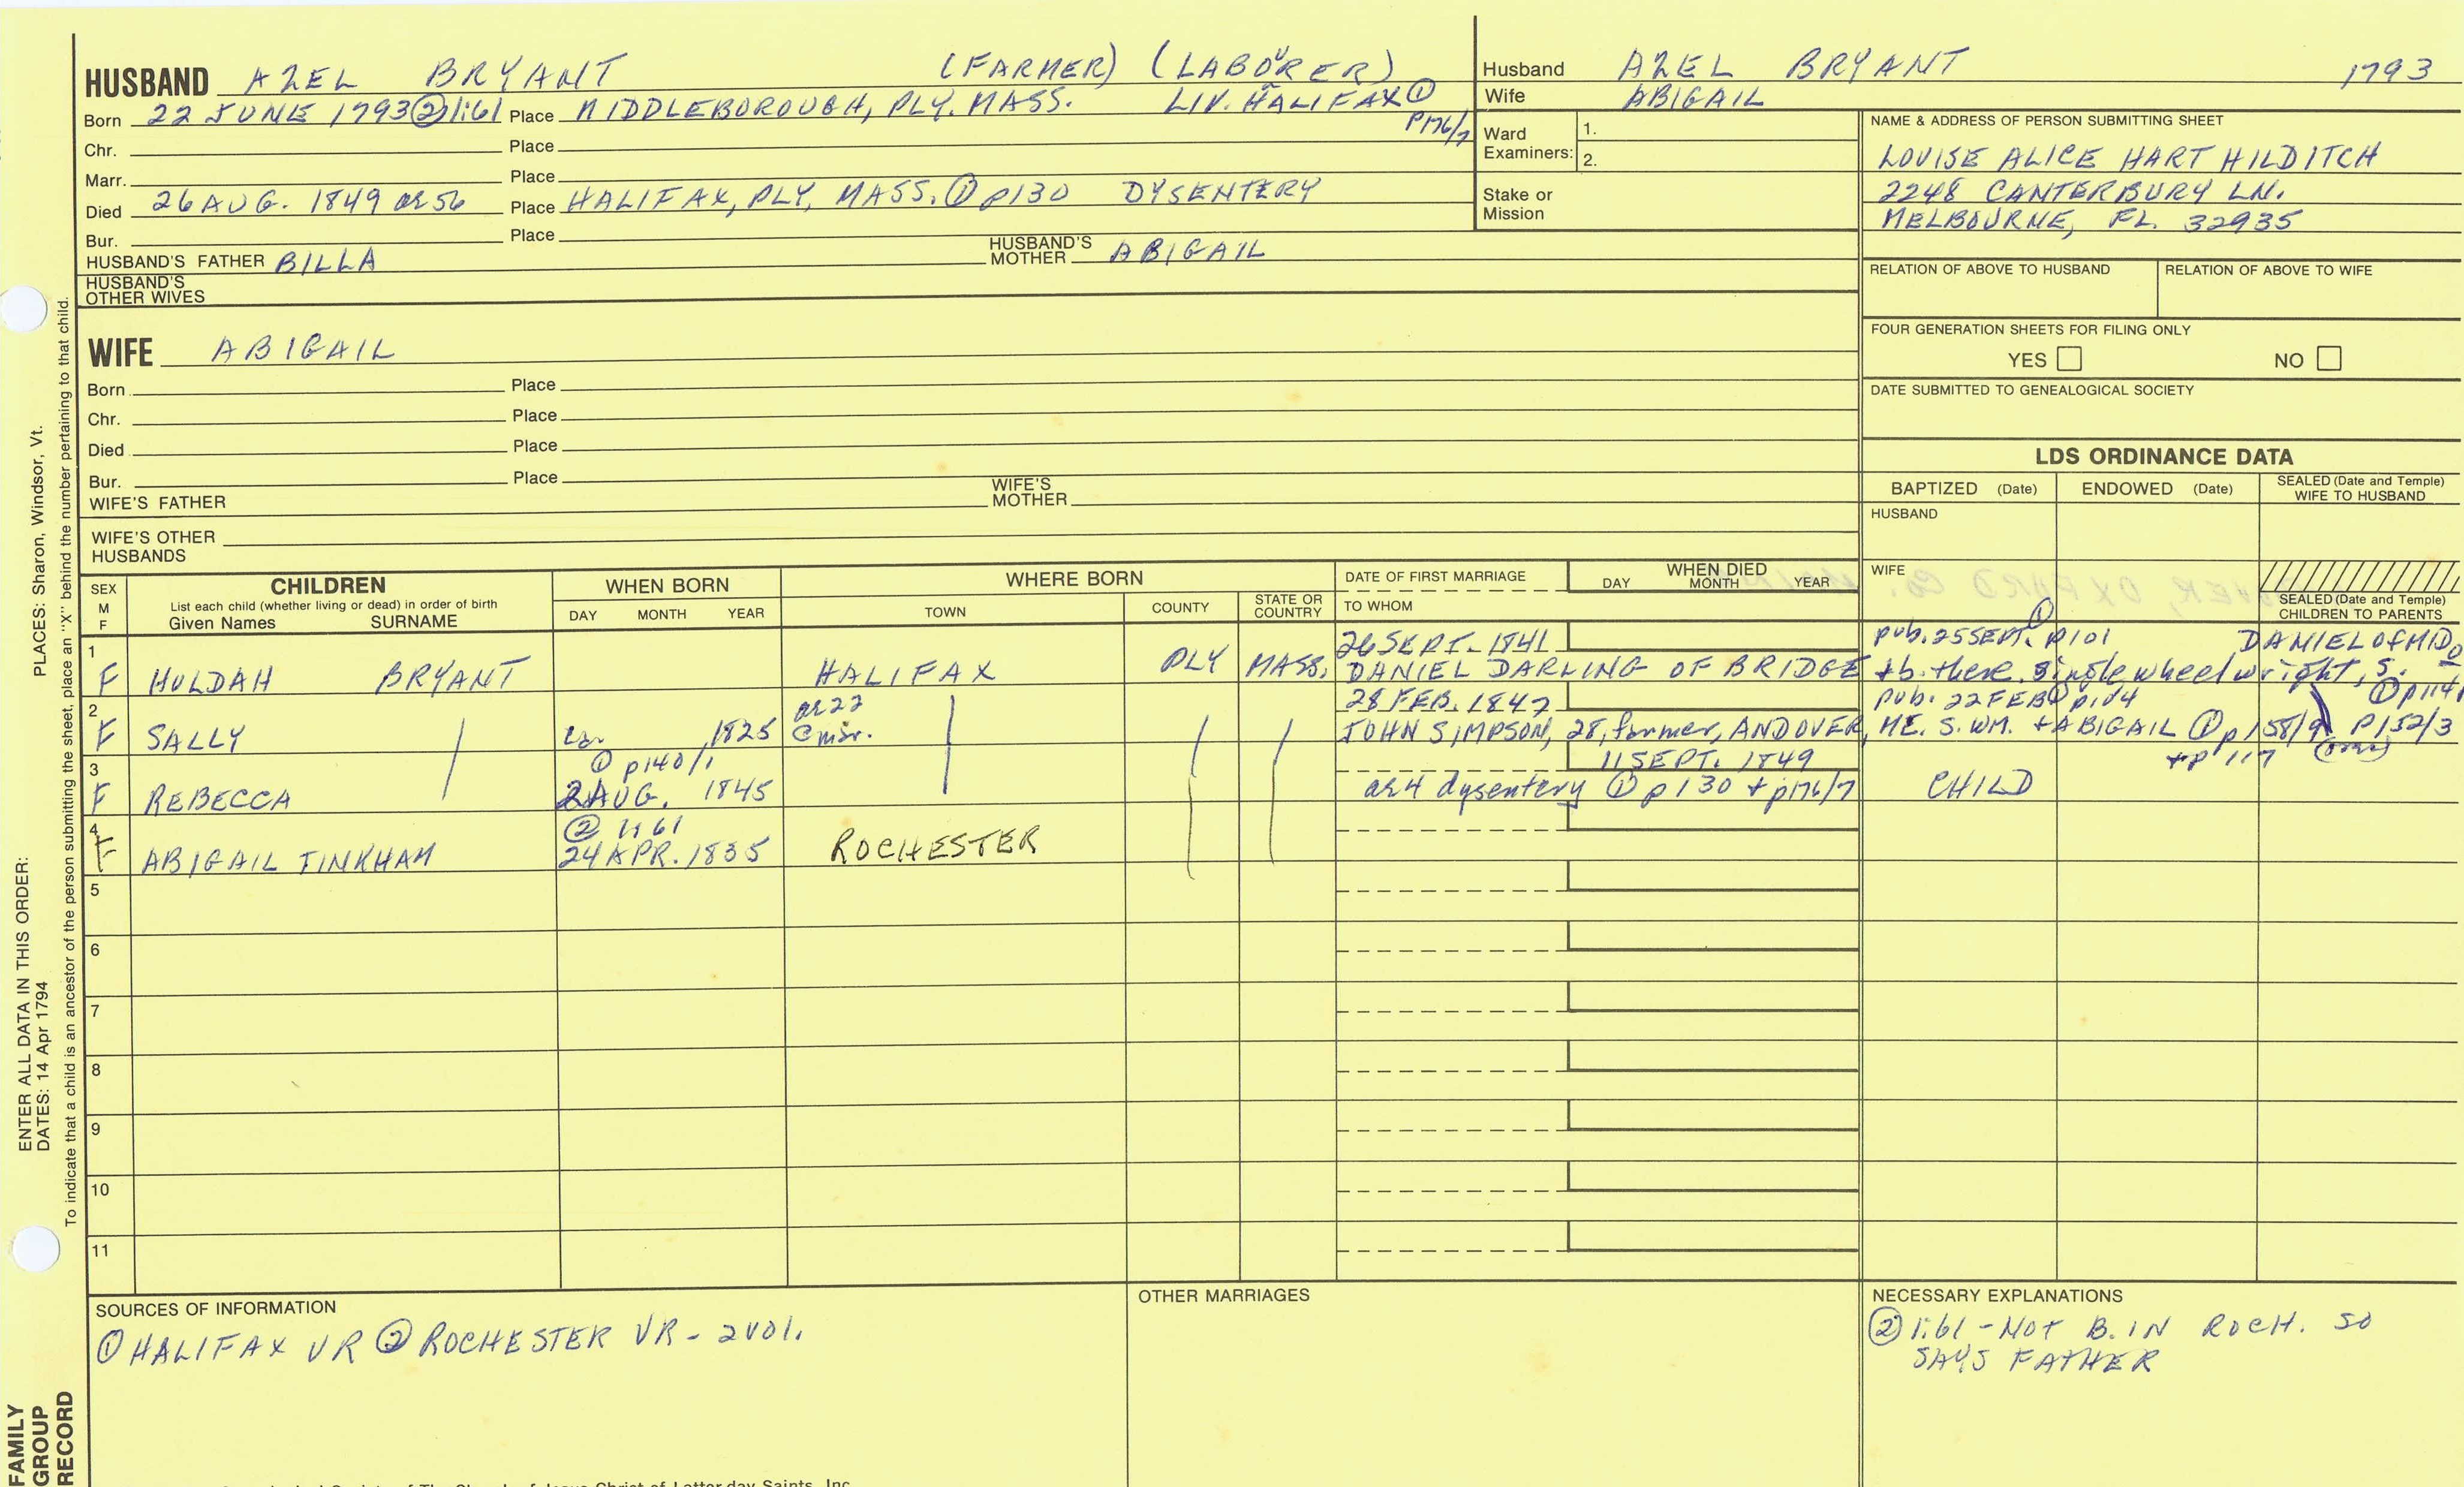 HUSBAND AZEL BRYANT (FARMER) (LABORER)
Born 22 JUNE 1793 ② 1:61 Place MIDDLEBOROUGH, PLY. MASS. LIV. HALIFAX ①
P176/7
Chr. Place
Marr. Place
Died 26 AUG. 1849 ae 56 Place HALIFAX, PLY, MASS. ① p130 DYSENTERY
Bur. Place
HUSBAND'S FATHER BILLA HUSBAND'S MOTHER ABIGAIL
HUSBAND'S
OTHER WIVES
Husband AZEL BRYANT 1793
Wife ABIGAIL
Ward
Examiners: 1.
2.
Stake or
Mission
NAME & ADDRESS OF PERSON SUBMITTING SHEET
LOUISE ALICE HART HILDITCH
2248 CANTERBURY LN.
MELBOURNE, FL. 32935
RELATION OF ABOVE TO HUSBAND RELATION OF ABOVE TO WIFE
FOUR GENERATION SHEETS FOR FILING ONLY
YES NO
DATE SUBMITTED TO GENEALOGICAL SOCIETY
WIFE ABIGAIL
Born Place
Chr. Place
Died Place
Bur. Place
WIFE'S FATHER WIFE'S MOTHER
WIFE'S OTHER
HUSBANDS
LDS ORDINANCE DATA
BAPTIZED (Date) ENDOWED (Date) SEALED (Date and Temple)
WIFE TO HUSBAND
HUSBAND
WIFE
SEALED (Date and Temple)
CHILDREN TO PARENTS
SEX
M
F
CHILDREN
List each child (whether living or dead) in order of birth
Given Names SURNAME
WHEN BORN
DAY MONTH YEAR
WHERE BORN
TOWN COUNTY STATE OR
COUNTRY
DATE OF FIRST MARRIAGE
TO WHOM
WHEN DIED
DAY MONTH YEAR
1 26 SEPT. 1841 pub. 25 SEPT. ① p101 DANIEL OF MID
F HULDAH BRYANT HALIFAX PLY MASS. DANIEL DARLING OF BRIDGE + b. there. single wheelwright, S.
① p114
2 ae 22 28 FEB. 1847 pub. 22 FEB ① p104
F SALLY 1825 @ mar. JOHN SIMPSON, 28, farmer, ANDOVER, ME. S. WM. + ABIGAIL ① p158/9 P152/3
+p 117
3 ① p140/1 11 SEPT. 1849
F REBECCA 2 AUG. 1845 ae 4 dysentery ① p130 + p176/7 CHILD
4 ② 1:61
F ABIGAIL TINKHAM 24 APR. 1835 ROCHESTER
5
6
7
8
9
10
11
SOURCES OF INFORMATION
① HALIFAX VR ② ROCHESTER VR - 2 vol.
OTHER MARRIAGES
NECESSARY EXPLANATIONS
② 1:61 - NOT B. IN ROCH. SO
SAYS FATHER
PLACES: Sharon, Windsor, Vt.
To indicate that a child is an ancestor of the person submitting the sheet, place an "X" behind the number pertaining to that child.
ENTER ALL DATA IN THIS ORDER:
DATES: 14 Apr 1794
FAMILY
GROUP
RECORD